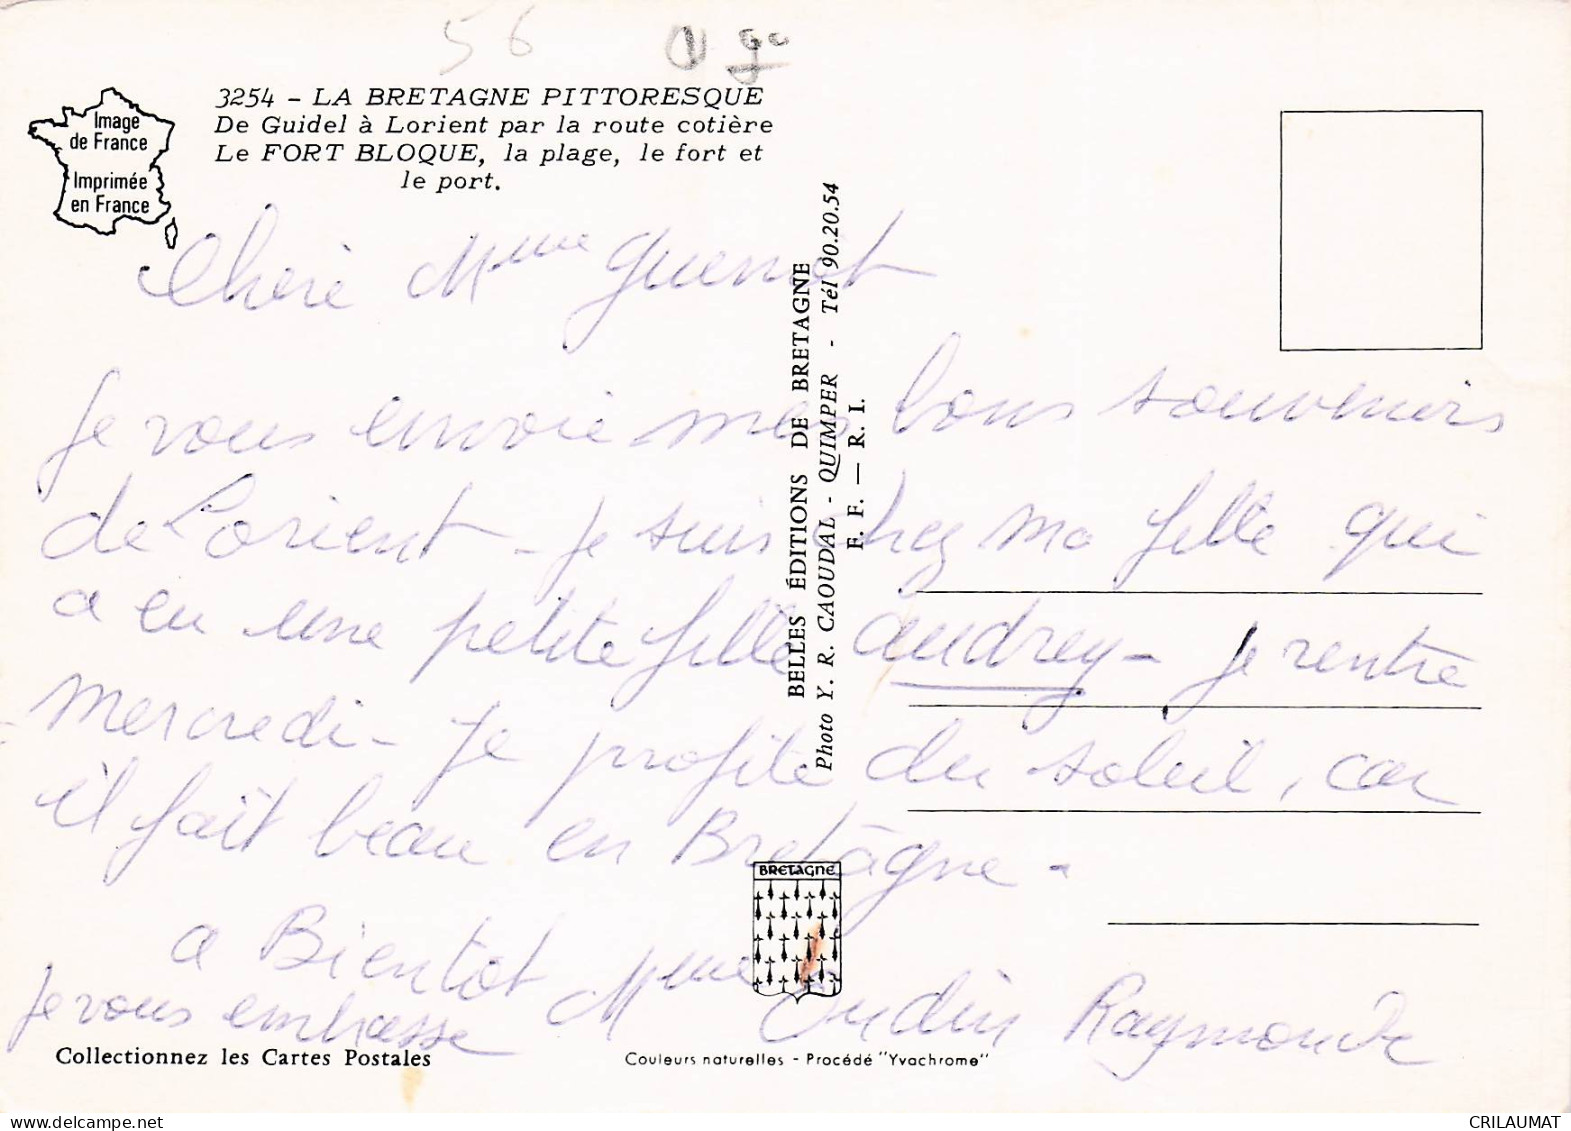 56
Image
de France
Imprimée
en France
3254 - LA BRETAGNE PITTORESQUE
De Guidel à Lorient par la route cotière
Le FORT BLOQUE, la plage, le fort et
le port.
Chère Mme
Je vous envoie mes bons souvenirs
de Lorient - Je suis chez ma fille qui
a eu une petite fille Audrey - Je rentre
mercredi - Je profite du soleil, car
il fait beau en Bretagne -
a Bientot Mme Oudin Raymonde
Je vous embrasse
BELLES ÉDITIONS DE BRETAGNE
Photo Y. R. CAOUDAL - QUIMPER - Tél 90.20.54
F. F. — R. I.
BRETAGNE
Collectionnez les Cartes Postales
Couleurs naturelles - Procédé "Yvachrome"
CRILAUMAT